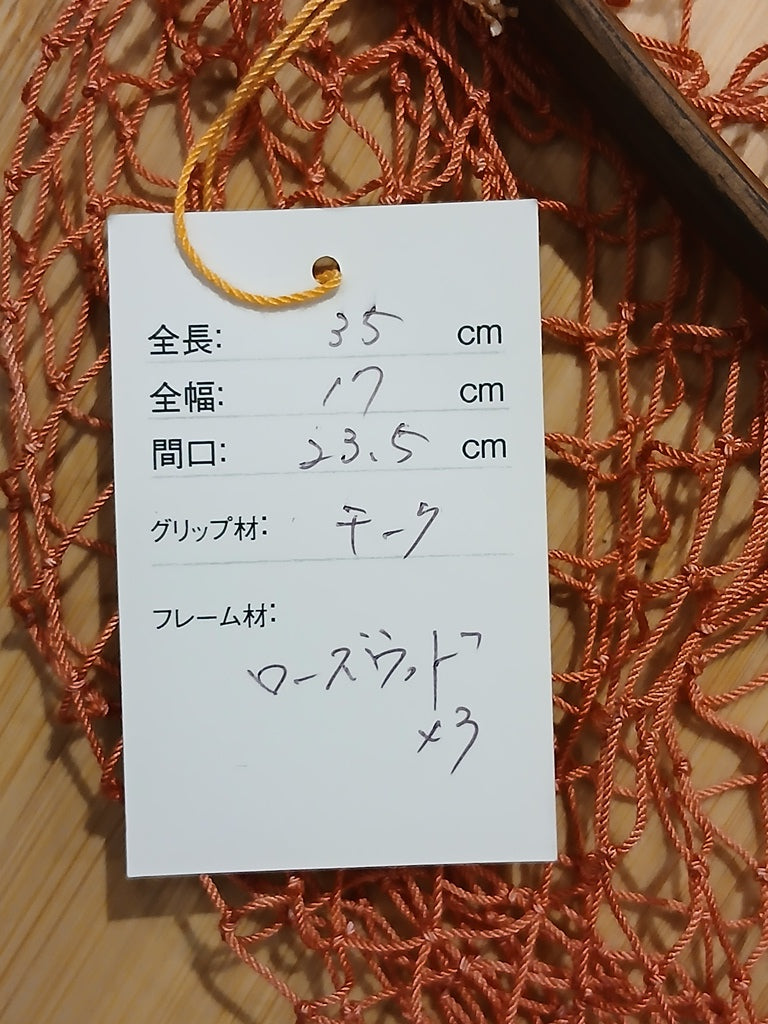 全長: 35 cm
全幅: 17 cm
間口: 23.5 cm
グリップ材: チーク
フレーム材:
ローズウッド
×3